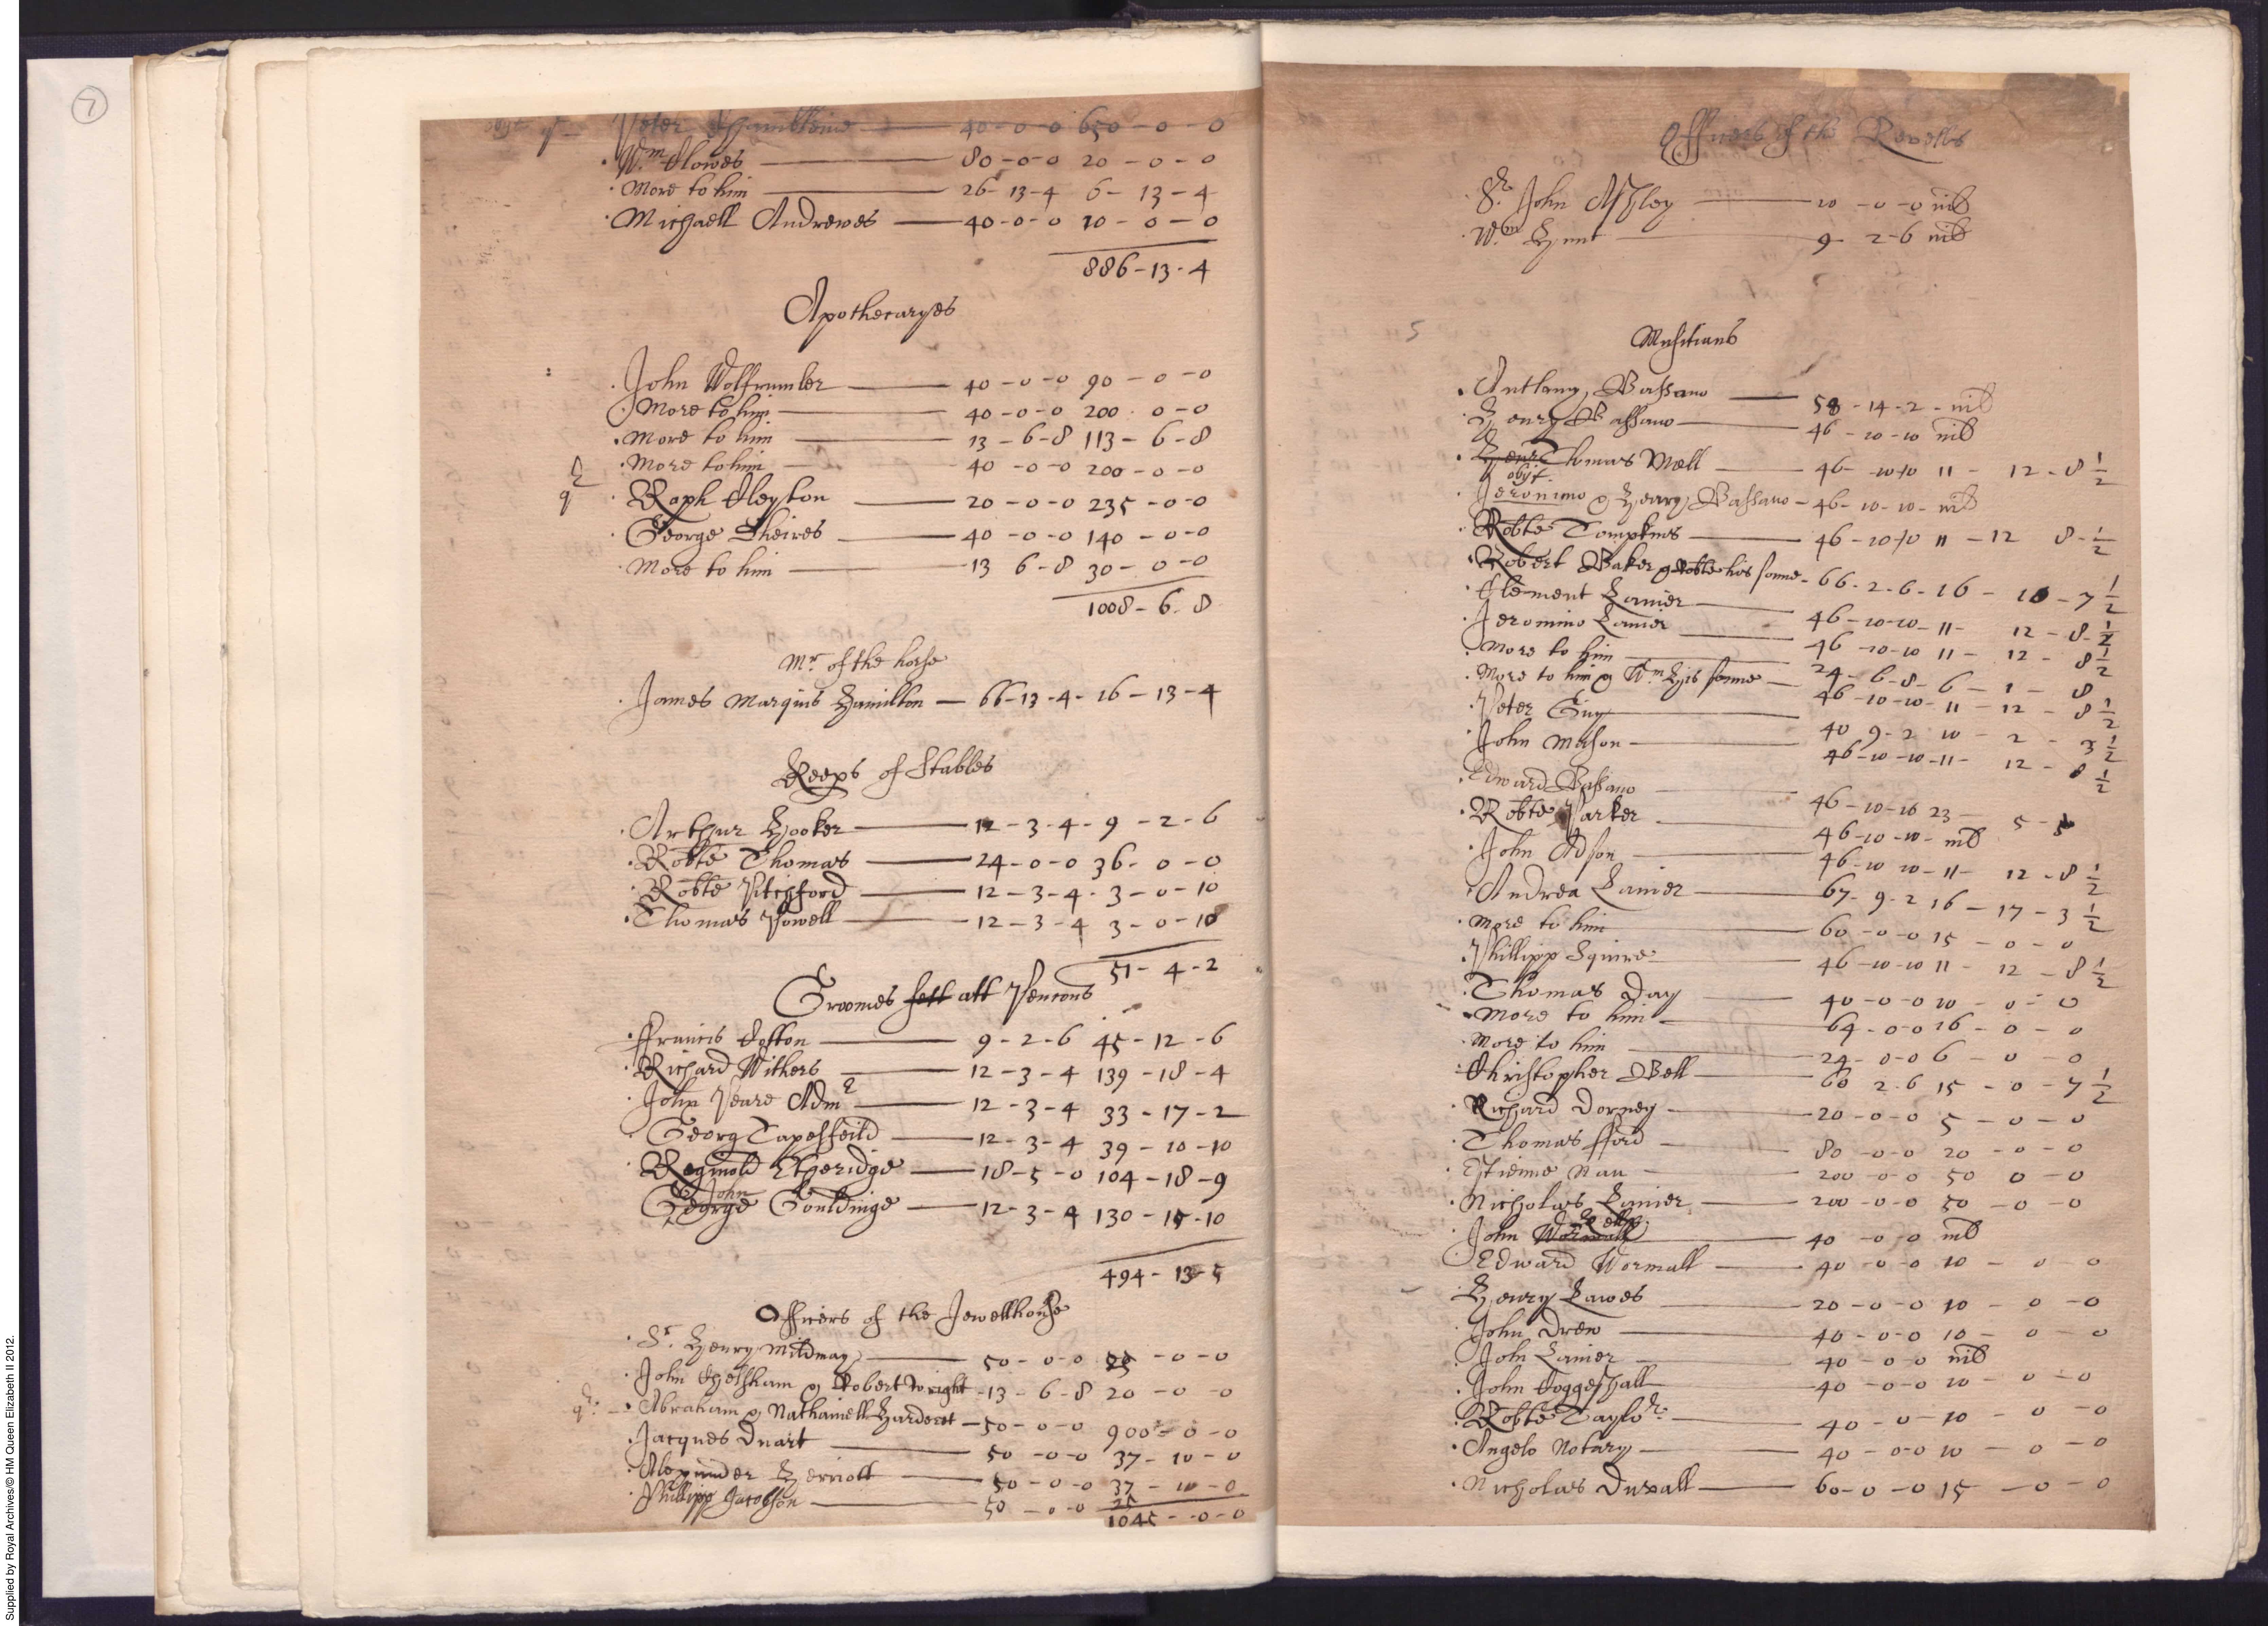 7
Peter Chamberleine 40-0-0 650-0-0
Wm Clowes 80-0-0 20-0-0
More to him 26-13-4 6-13-4
Michaell Andrewes 40-0-0 10-0-0
886-13-4
Apothecaryes
John Wolfrumler 40-0-0 90-0-0
More to him 40-0-0 200-0-0
More to him 13-6-8 113-6-8
More to him 40-0-0 200-0-0
Raph Cleyton 20-0-0 235-0-0
George Sheires 40-0-0 140-0-0
More to him 13 6-8 30-0-0
1008-6-8
Mr. of the horse
James Marquis Hamilton 66-13-4-16-13-4
Keeps of Stables
Arthur Hooker 12-3-4-9-2-6
Robte Thomas 24-0-0 36-0-0
Robte Pitchford 12-3-4-3-0-10
Thomas Powell 12-3-4 3-0-10
51-4-2
Groomes att
ffrancis Coston 9-2-6 45-12-6
Richard Withers 12-3-4 139-18-4
John Peare Admr 12-3-4 33-17-2
Georg Tapesfeild 12-3-4 39-10-10
Reginold Etheridge 18-5-0 104-18-9
John
George Gouldinge 12-3-4 130-15-10
494-13-5
Officers of the Jewellhouse
Sr. Henry Mildmay 50-0-0 25-0-0
John Chesham & Robert Wright 13-6-8 20-0-0
Abraham & Nathaniell Harderet 50-0-0 900-0-0
Jacques Duart 50-0-0 37-10-0
Alexander Herriott 50-0-0 37-10-0
Phillipp Jacobson 50-0-0 25
1045-0-0
Officers of the Revells
Sr. John Ashley 10-0-0 nil
Wm Hunt 9 2-6 nil
5
Musitians
Anthony Bassano 58-14-2-nil
Henry Bassano 46-10-10 nil
Thomas Mell 46-10-10 11-12-8 1/2
obijt.
Jeronimo & Henry Bassano 46-10-10-nil
Robte Tompkins 46-10-10 11-12 8-1/2
Robert Baker & Robte his sonne 66-2-6-16-10-7 1/2
Clement Lanier 46-10-10-11-12-8-1/2
Jeronimo Lanier 46-10-10 11-12-8 1/2
More to him 24-6-8-6-1-8
More to him & Wm his sonne 46-10-10-11-12-8 1/2
Peter Guy 40 9-2 10-2-3 1/2
John Mason 46-10-10-11-12-8 1/2
Edward Bassano 46-10-10 23-5-5
Robte Parker 46-10-10-nil
John Adson 46-10 10-11-12-8 1/2
Andrea Lanier 67-9-2 16-17-3 1/2
More to him 60-0-0 15-0-0
Phillipp Squire 46-10-10 11-12-8 1/2
Thomas Day 40-0-0 10-0-0
More to him 64-0-0 16-0-0
More to him 24-0-0 6-0-0
Christopher Bell 60 2-6 15-0-7 1/2
Richard Dorney 20-0-0 5-0-0
Thomas fford 80-0-0 20-0-0
Estienne Nau 200-0-0 50 0-0
Nicholas Lanier 200-0-0 50-0-0
Kelly
John Wormall 40-0-0 nil
Edward Wormall 40-0-0 10-0-0
Henry Lawes 20-0-0 10-0-0
John Drew 40-0-0 10-0-0
John Lanier 40-0-0 nil
John Coggeshall 40-0-0 10-0-0
Robte Taylor 40-0-10-0-0
Angelo Notary 40-0-0 10-0-0
Nicholas Duvall 60-0-0 15-0-0
Supplied by Royal Archives/© HM Queen Elizabeth II 2012.